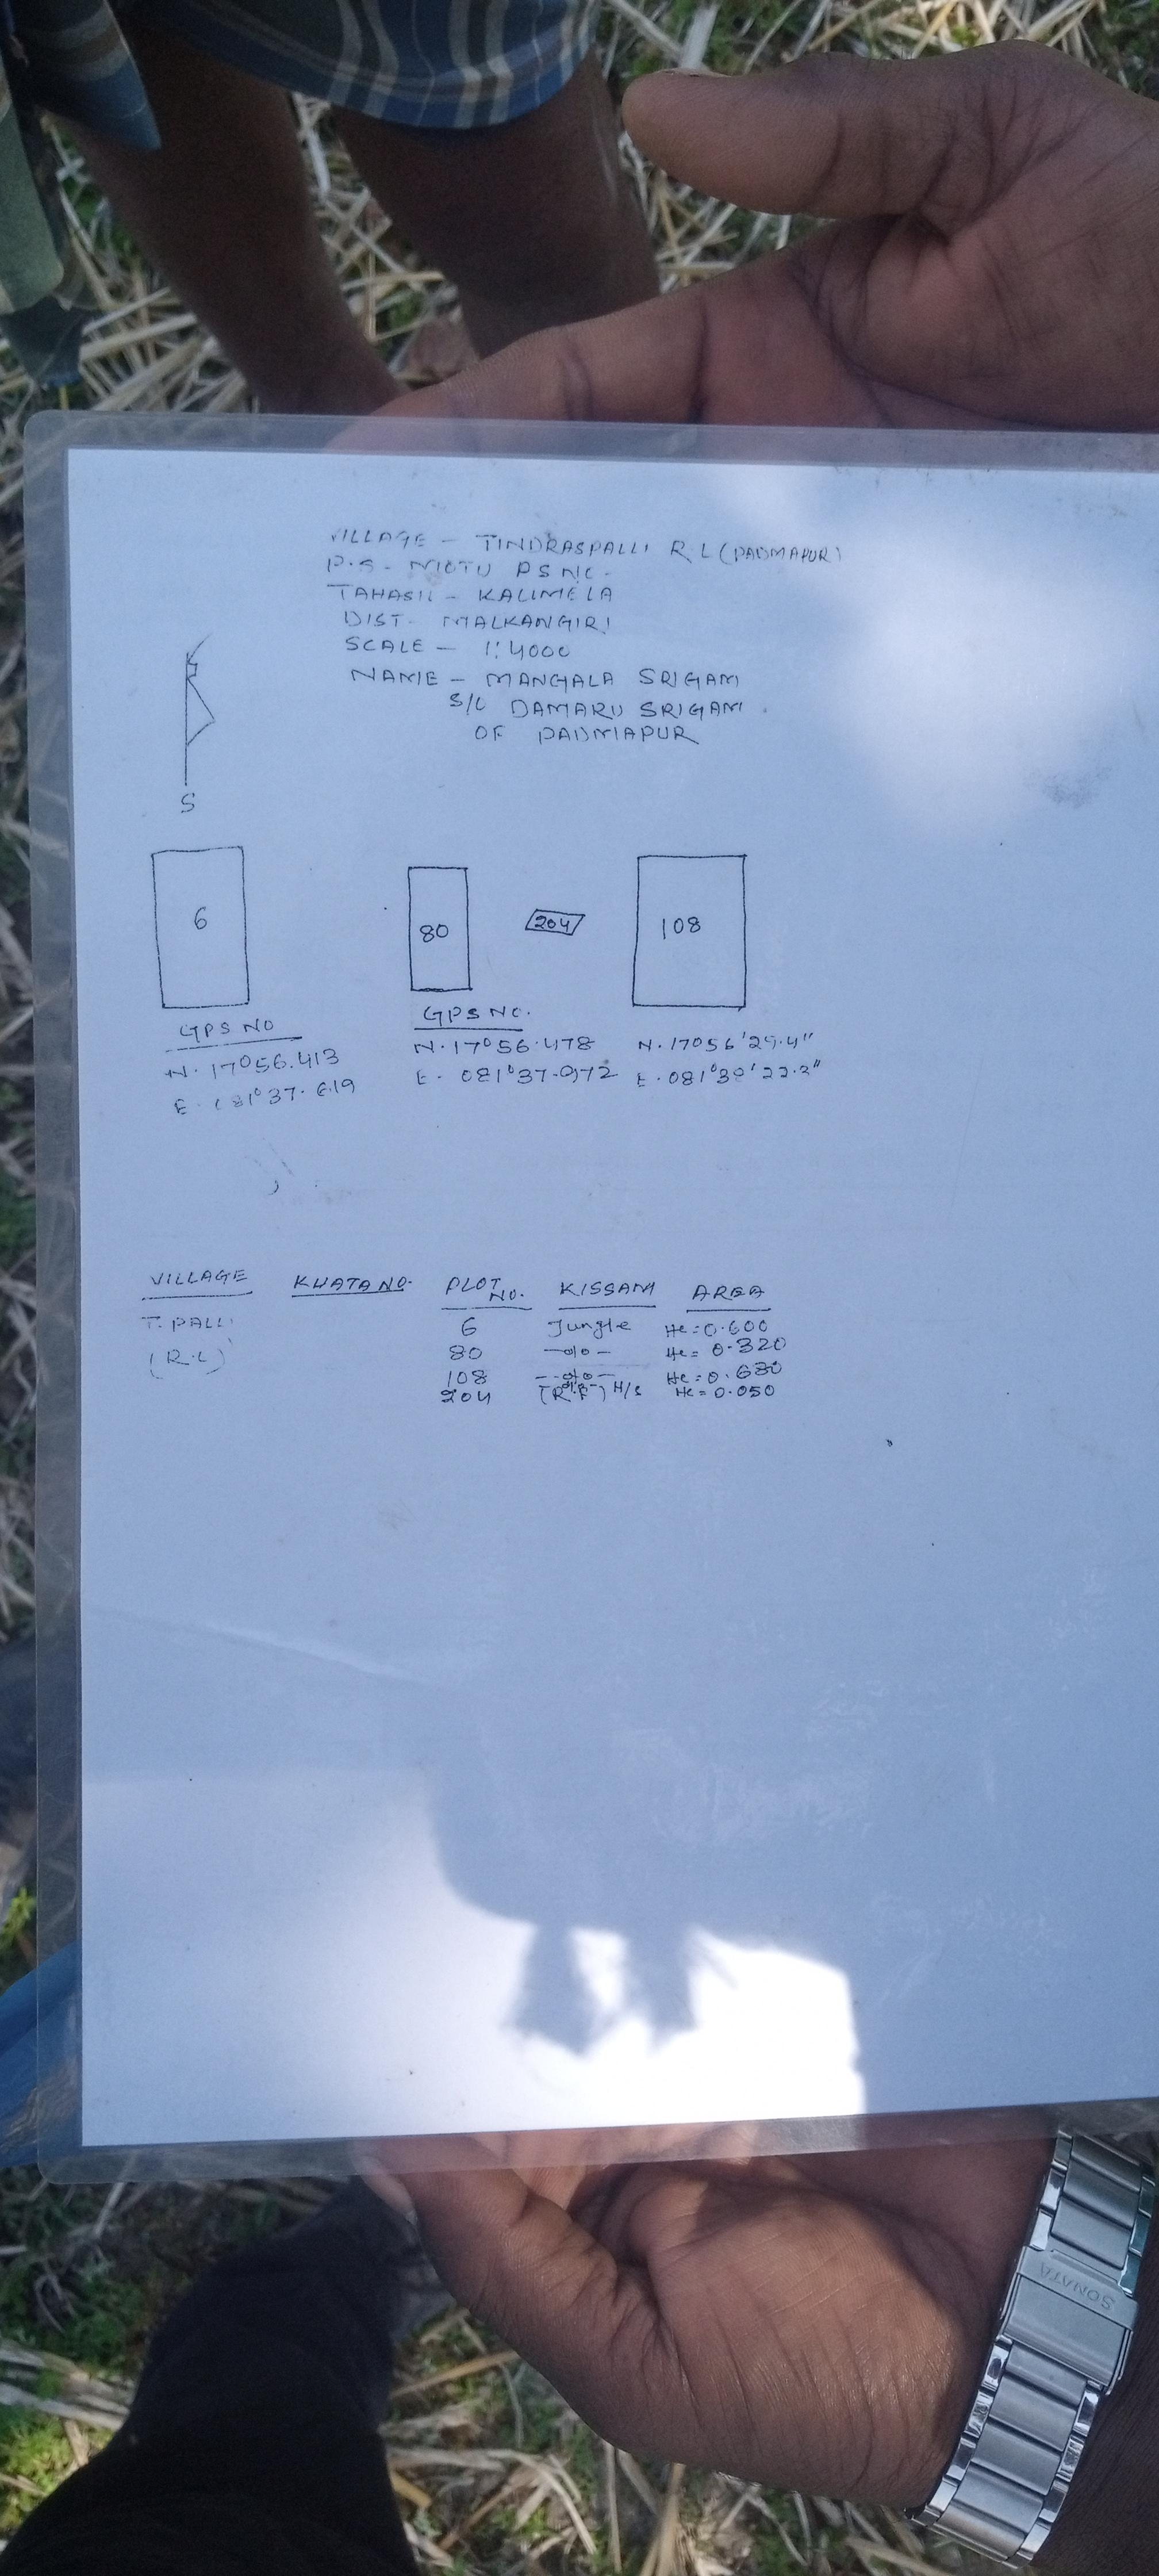 VILLAGE - TINDRASPALLI R.L (PADMAPUR)
P.S - MOTU PS NO -
TAHASIL - KALIMELA
DIST - MALKANGIRI
SCALE - 1:4000
NAME - MANGALA SRIGAM
S/O DAMARU SRIGAM
OF PADMAPUR
S
6
80
204
108
GPS NO
N. 17°56.413
E. 081°37.619
GPS NO.
N. 17°56.478
E. 081°37.972
N. 17°56'29.4"
VILLAGE KHATA NO. PLOT NO. KISSAM AREA
T. PALLI 6 Jungle He = 0.600
(R.L) 80 -do- He = 0.320
108 -do- He = 0.680
204 H/S He = 0.050
SONATA